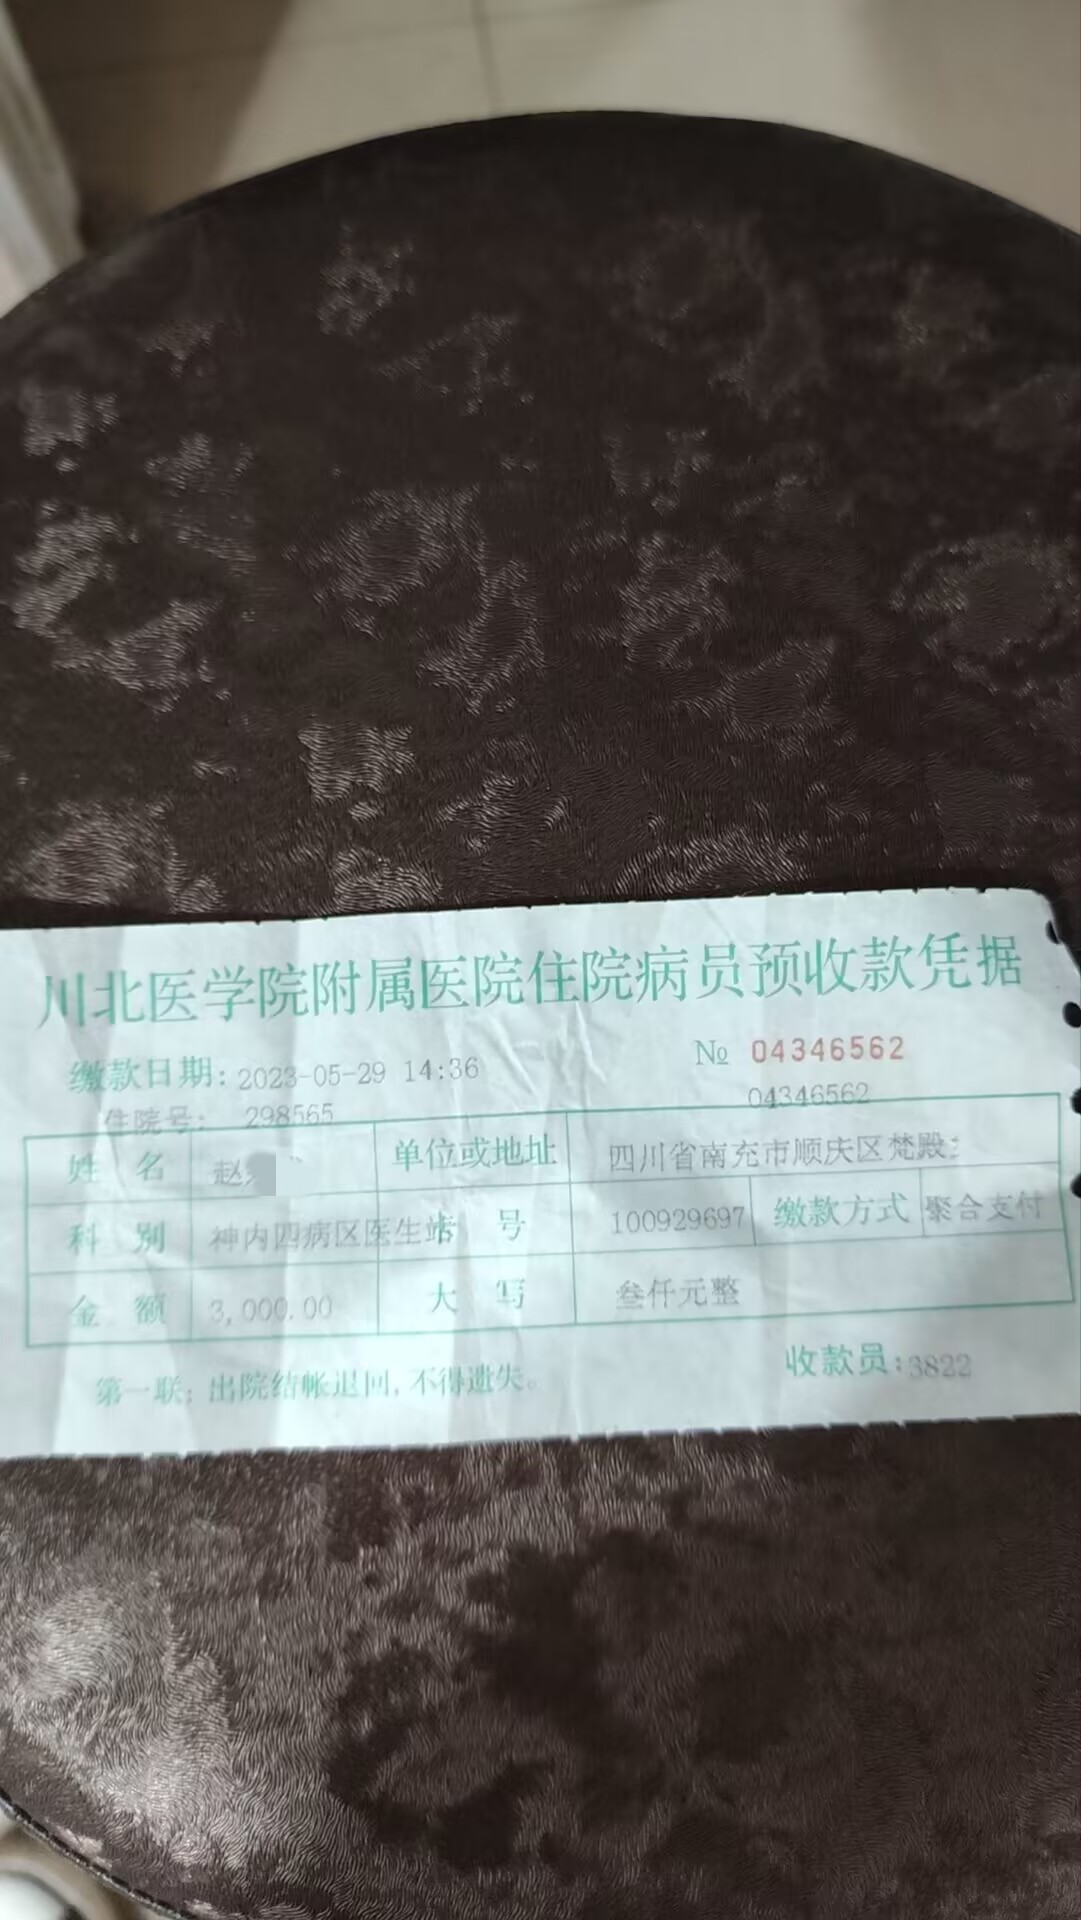 川北医学院附属医院住院病员预收款凭据
缴款日期: 2023-05-29 14:36 № 04346562
住院号: 298565 04346562
姓 名 赵 单位或地址 四川省南充市顺庆区梵殿
科 别 神内四病区医生站 号 100929697 缴款方式 聚合支付
金 额 3,000.00 大 写 叁仟元整
第一联: 出院结帐退回,不得遗失。 收款员:3822